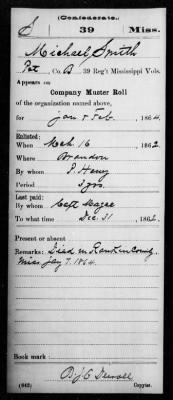 (Confederate.)
S 39 Miss.
Michael Smith
Pvt, Co. B, 39 Reg't Mississippi Vols.
Appears on
Company Muster Roll
of the organization named above,
for Jan & Feb, 1864
Enlisted:
When Mch 16, 1862
Where Brandon
By whom J. Henry
Period 3 yrs.
Last paid:
By whom Capt Magee
To what time Dec. 31, 1862
Present or absent
Remarks: Died in Rankin County
Miss Jany 7. 1864.
Book mark:
(642) Copyist.